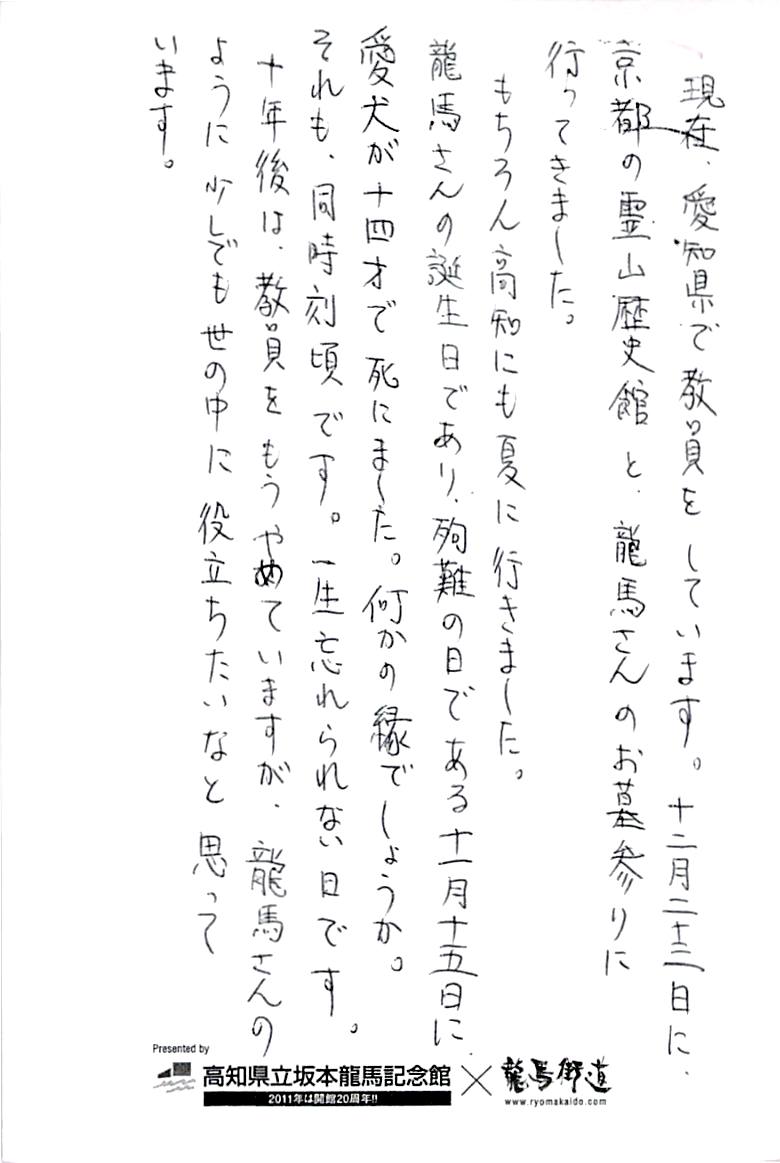 現在、愛知県で教員をしています。十二月二十三日に、
京都の霊山歴史館と、龍馬さんのお墓参りに
行ってきました。
もちろん高知にも夏に行きました。
龍馬さんの誕生日であり、殉難の日である十一月十五日に、
愛犬が十四才で死にました。何かの縁でしょうか。
それも、同時刻頃です。一生忘れられない日です。
十年後は、教員をもうやめていますが、龍馬さんの
ように少しでも世の中に役立ちたいなと思って
います。
Presented by
高知県立坂本龍馬記念館×龍馬街道
2011年は開館20周年!!
www.ryomakaido.com